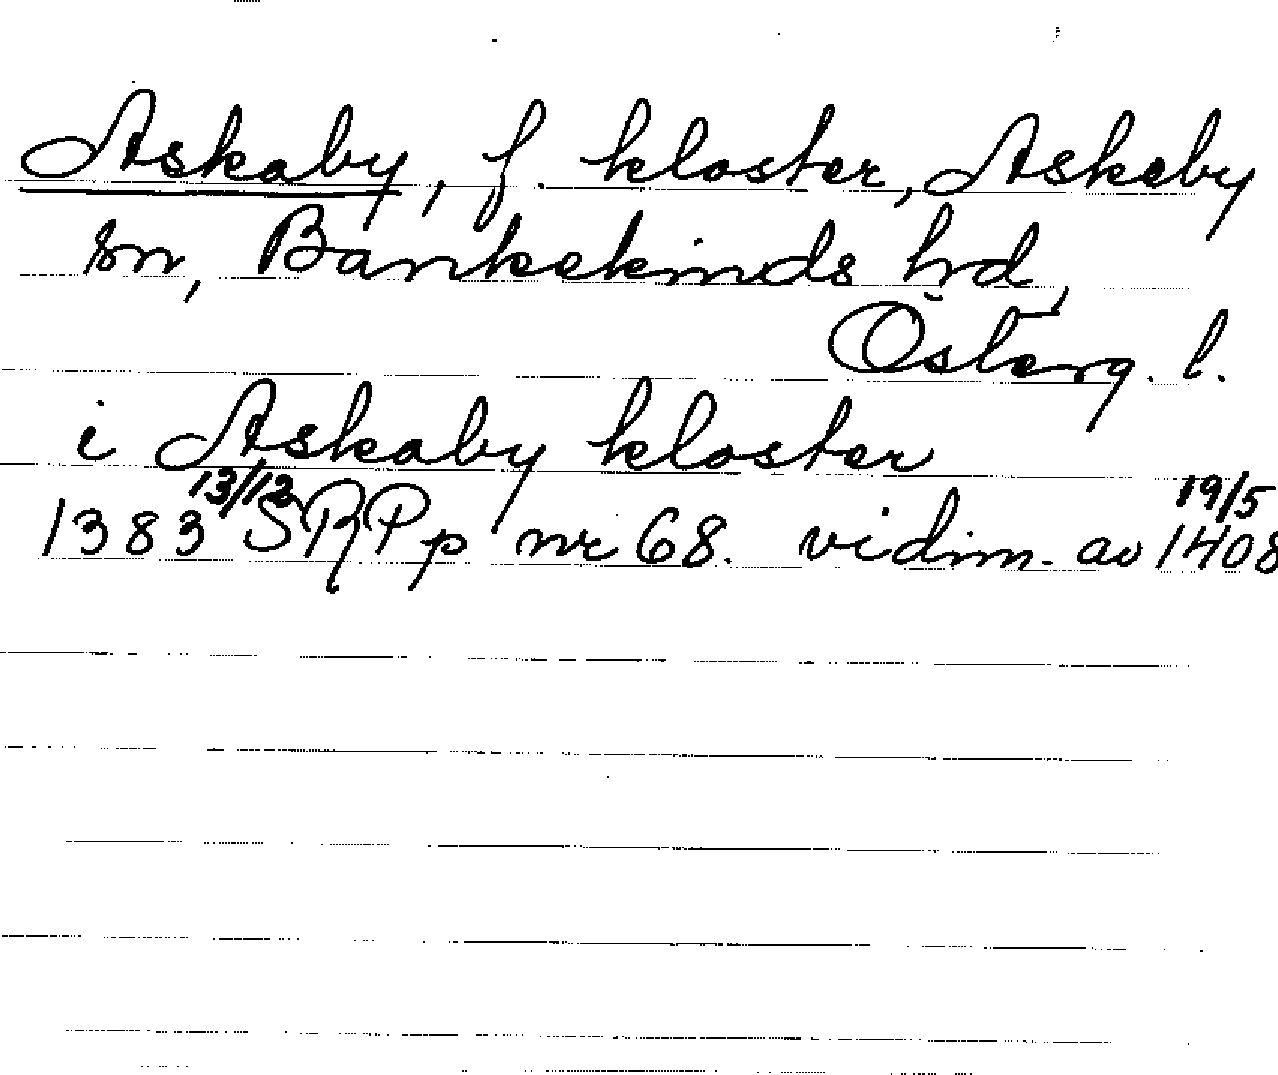 Askaby, f. kloster, Askeby
sn, Bankekinds hrd,
Österg. l.
i Askaby kloster
1383 13/12 SRPp nr 68. vidim. av 19/5 1408